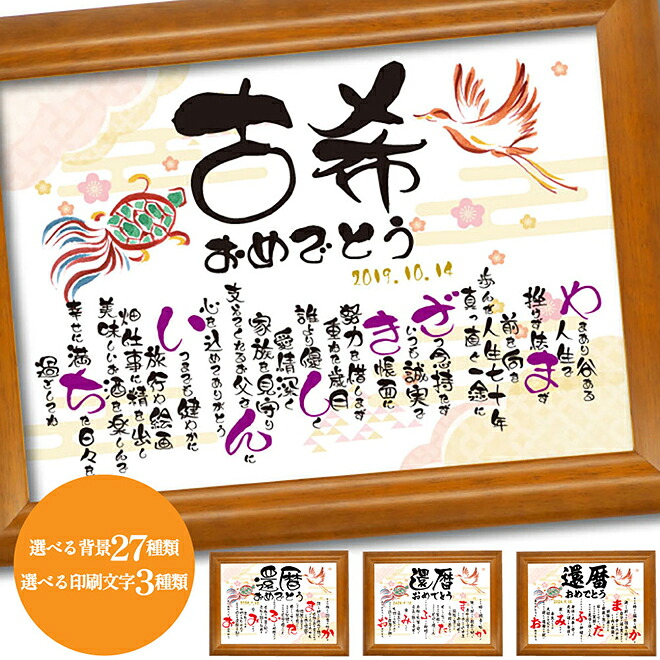 古希
おめでとう
2019.10.14
やまあり谷ある
人生で
挫けず怯まず
前を向き
真っ直ぐ一途に
歩んだ人生七十年
ざつ念持たず
いつも誠実で
き帳面に
努力を惜しまず
重ねた歳月
誰より優しく
愛情深く
家族を見守り
支えてくれたお父さんに
心を込めてありがとう
いつまでも健やかに
旅行や絵画
畑仕事に精を出し
美味しいお酒を楽しんで
幸せに満ちた日々を
過ごしてね
選べる背景27種類
選べる印刷文字3種類
還暦
おめでとう
還暦
おめでとう
還暦
おめでとう